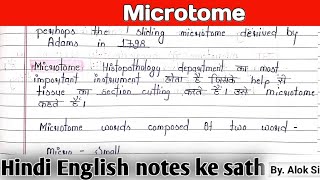 Microtome
perhaps the 1 sliding microtome derived by
Adams in 1798.
Microtome : Histopathology department का most
important instrument होता है जिसके help से
tissue का section cutting करते हैं। उसे microtome
कहते हैं।
Microtome words composed of two word -
Micro - Small
Hindi English notes ke sath
By. Alok Si